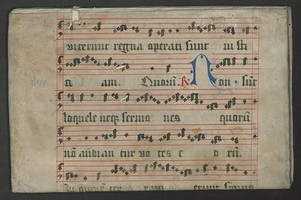 vicerunt regna operati sunt iusti
ci am. Quorū. ℟ Non sūt
loquele neqꝫ sermo nes quorū
nō audian tur vo ces e o rū.